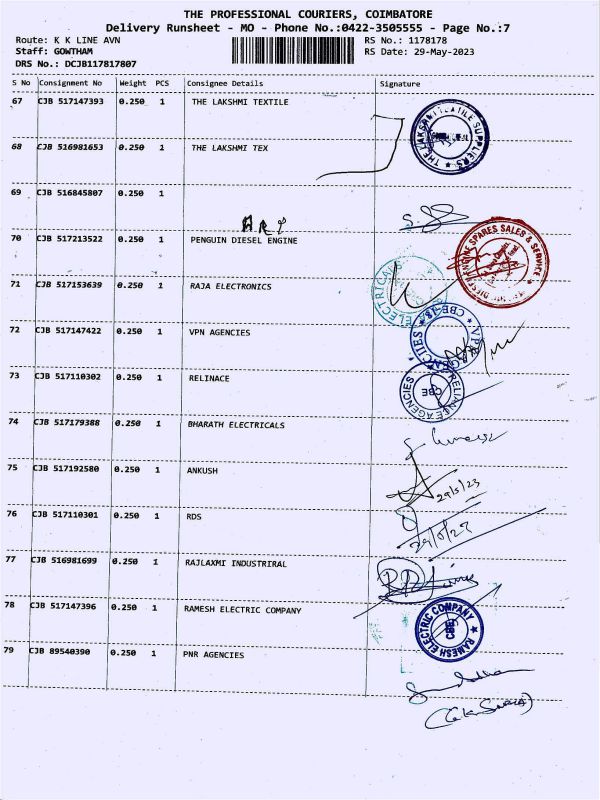 THE PROFESSIONAL COURIERS, COIMBATORE
Delivery Runsheet - MO - Phone No.:0422-3505555 - Page No.:7
Route: K K LINE AVN RS No.: 1178178
Staff: GOWTHAM RS Date: 29-May-2023
DRS No.: DCJB117817807
S No Consignment No Weight PCS Consignee Details Signature
67 CJB 517147393 0.250 1 THE LAKSHMI TEXTILE
68 CJB 516981653 0.250 1 THE LAKSHMI TEX
69 CJB 516845807 0.250 1
70 CJB 517213522 0.250 1 PENGUIN DIESEL ENGINE
71 CJB 517153639 0.250 1 RAJA ELECTRONICS
72 CJB 517147422 0.250 1 VPN AGENCIES
73 CJB 517110302 0.250 1 RELINACE
RELIANCE AGENCIES
CBE
74 CJB 517179388 0.250 1 BHARATH ELECTRICALS
75 CJB 517192580 0.250 1 ANKUSH
29/5/23
76 CJB 517110301 0.250 1 RDS
77 CJB 516981699 0.250 1 RAJLAXMI INDUSTRIRAL
78 CJB 517147396 0.250 1 RAMESH ELECTRIC COMPANY
RAMESH ELECTRIC COMPANY
CBE
79 CJB 89540390 0.250 1 PNR AGENCIES